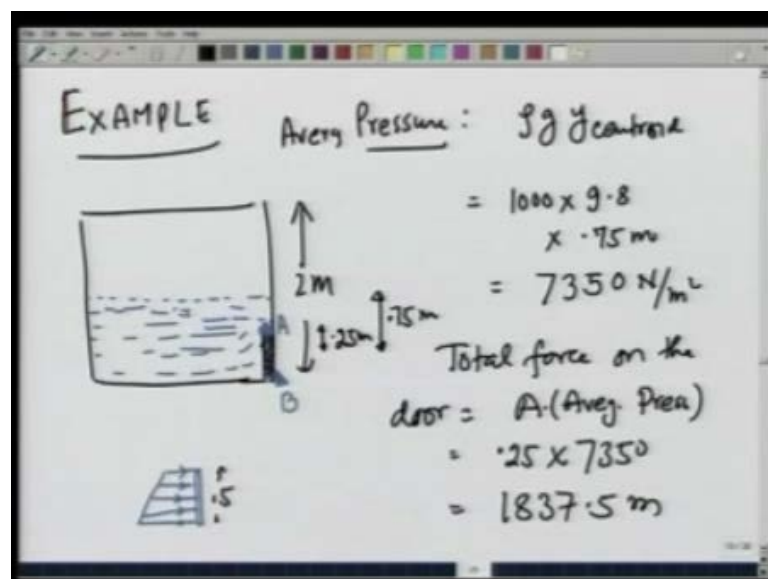 EXAMPLE
Averg Pressure : ρg ycentroid
= 1000 x 9.8
x .75 m
= 7350 N/m²
2m
A
.25m
.75 m
B
Total force on the
door = A.(Aveg. Pres)
= .25 x 7350
= 1837.5 m
.5